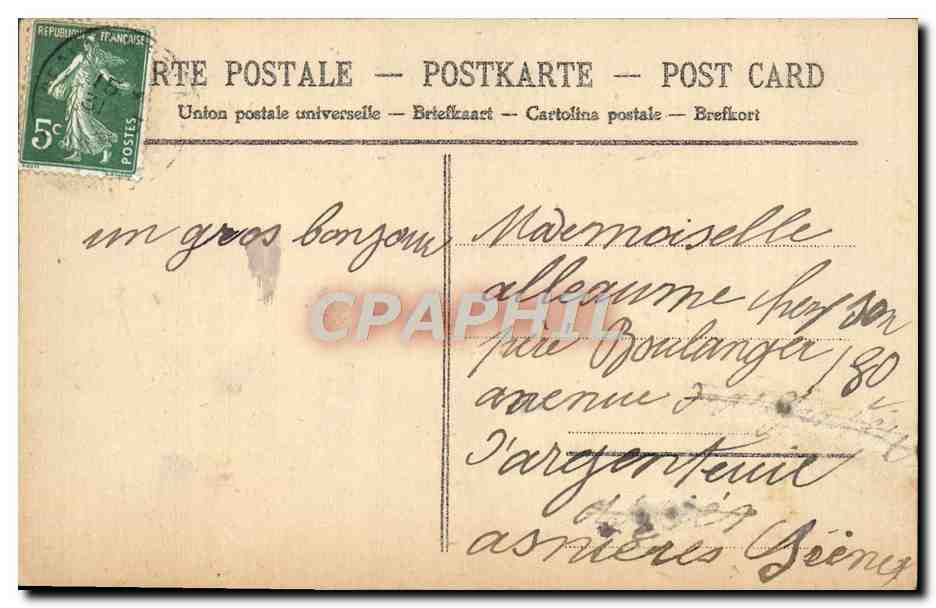 REPUBLIQUE FRANCAISE
5c
POSTES
RTE POSTALE — POSTKARTE — POST CARD
Union postale universelle — Briefkaart — Cartolina postale — Brefkort
un gros bonjour
Mademoiselle
alleaume chez son
père Boulanger 180
avenue
d'argenteuil
asnières Seine
CPAPHIL